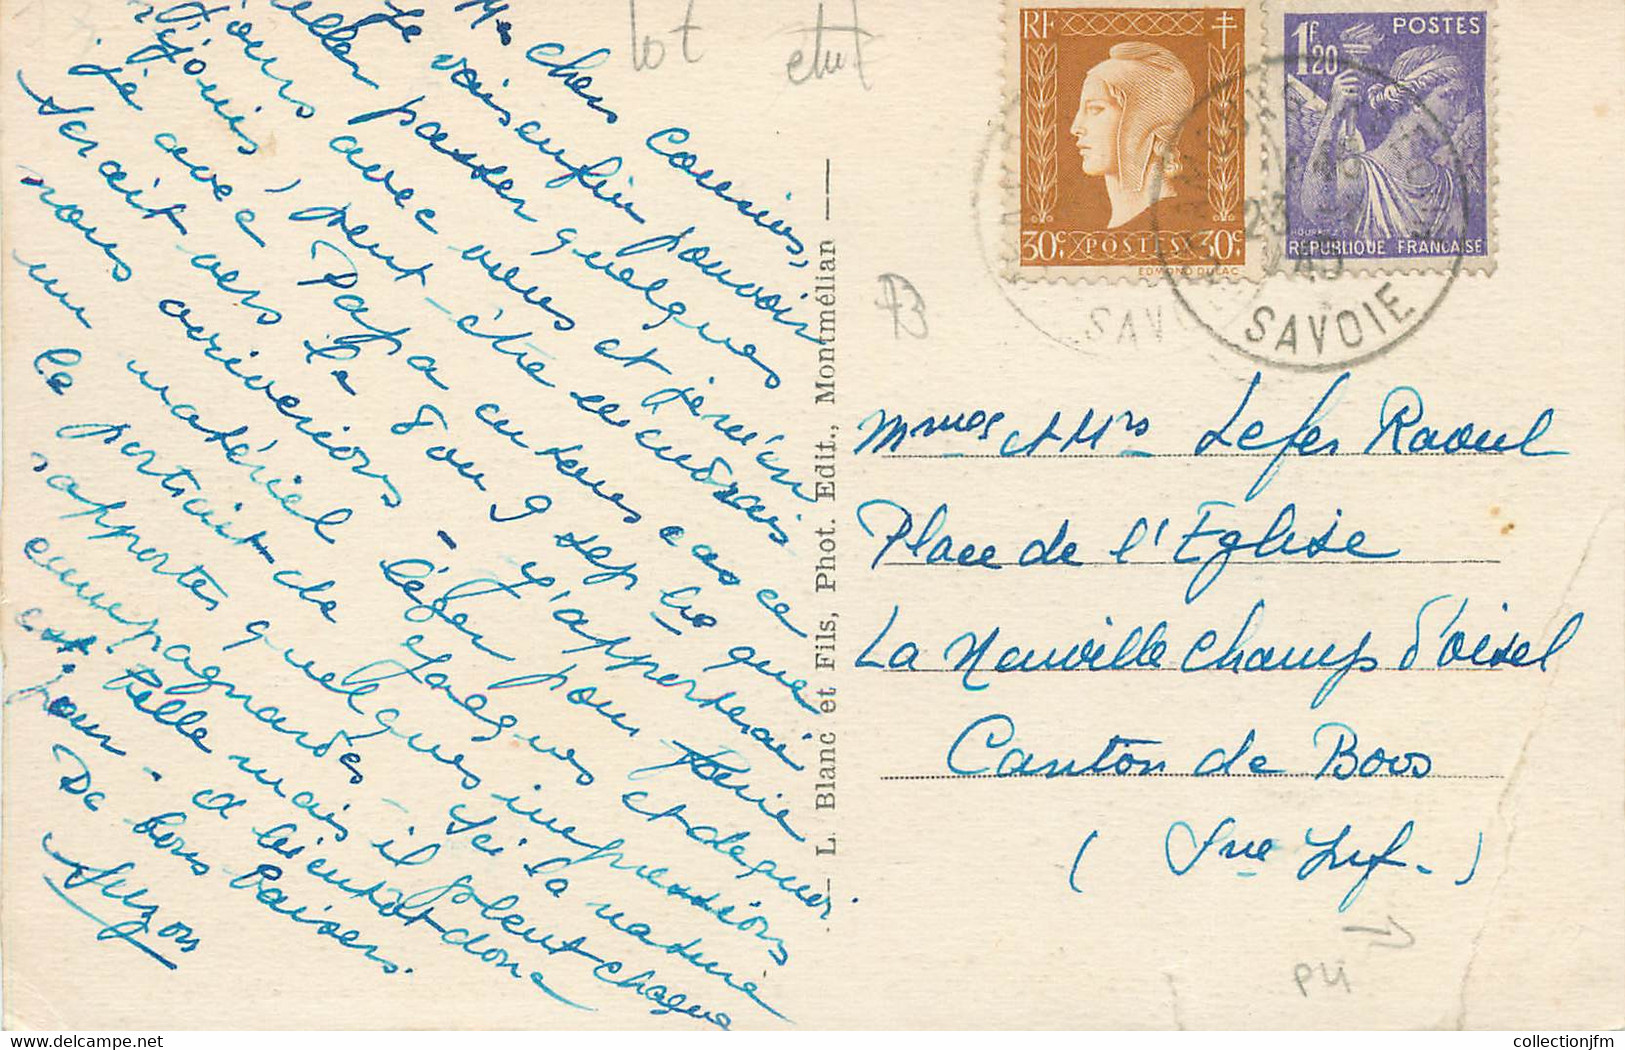 Mes chers Cousins,
Je vais enfin pouvoir
aller passer quelques
jours avec vous et je m'en
réjouis, peut-être viendrais
je avec Papa en tous cas ce
serait vers le 8 ou 9 sep bre que
nous arriverions - J'apporterai
un matériel léger pour faire
le portrait de Jacques et
rapporter quelques impressions
campagnardes - Ici la nature
est belle mais il pleut chaque
jour - A bientôt donc
De bons baisers.
Suzon
lot
RF
30c POSTES 30c
EDMOND DULAC
POSTES
1F20
REPUBLIQUE FRANÇAISE
23
SAVOIE
SAVOIE
L. Blanc et Fils, Phot. Edit., Montmélian
Mmes et Mrs Lefer Raoul
Place de l'Eglise
La Neuville Champ d'oisel
Canton de Boos
( Sne Inf - )
P4
collectionjfm